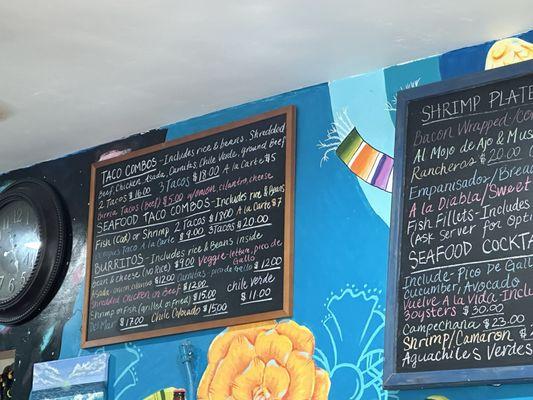 TACO COMBOS - Includes rice & beans. Shredded
Beef, Chicken, Asada, Carnitas, Chile Verde, ground Beef
2 Tacos $16.00 3 Tacos $18.00 A la Carte $5
Birria Tacos (Beef) $5.00 w/onion, cilantro, cheese
SEAFOOD TACO COMBOS - Includes rice & beans
Fish (Cod) or Shrimp 2 Tacos $18.00 A la Carte $7
Octopus Taco A la Carte $9.00 3 Tacos $20.00
BURRITOS - Includes Rice & Beans inside
bean & cheese (no Rice) $9.00 Veggie - lettuce, pico de Gallo
Asada $12.00 Carnitas - pico de gallo $12.00
Shredded chicken or Beef $12.00 chile verde
Fish (grilled or fried) $15.00 $11.00
Shrimp or Fish $15.00
Del Mar $17.00 Chile Colorado $15.00
SHRIMP PLATE
Bacon Wrapped
Al Mojo de Ajo & Mus
Rancheros $20.00
Empanisados/Brea
A la Diabla/Sweet
Fish Fillets - Includes
(Ask server for opti
SEAFOOD COCKTA
Include - Pico De Gall
Cucumber, Avocado
Vuelve A la Vida - Inclu
Oysters $30.00
Campechana $23.00
Shrimp/Camaron $2
Aguachiles Verdes